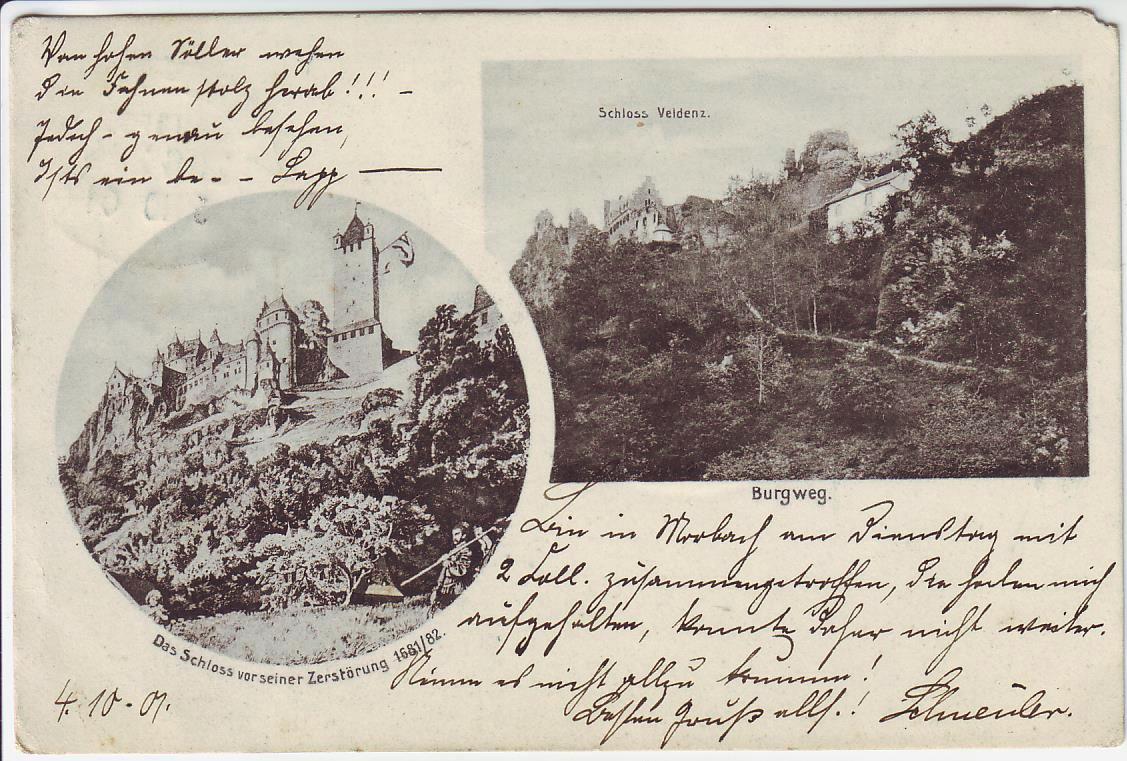 Von hohen Söller wehen
die Fahnen stolz herab!!! –
Jedoch – genau besehen,
Ists ein be-- Lapp ——
Schloss Veldenz.
Burgweg.
Das Schloss vor seiner Zerstörung 1681/82.
Bin in Morbach am Dienstag mit
2 Coll. zusammengetroffen, die haben mich
aufgehalten, konnte daher nicht weiter.
Nimm es nicht allzu krumm!
Besten Gruß alls.!
4. 10 - 01.